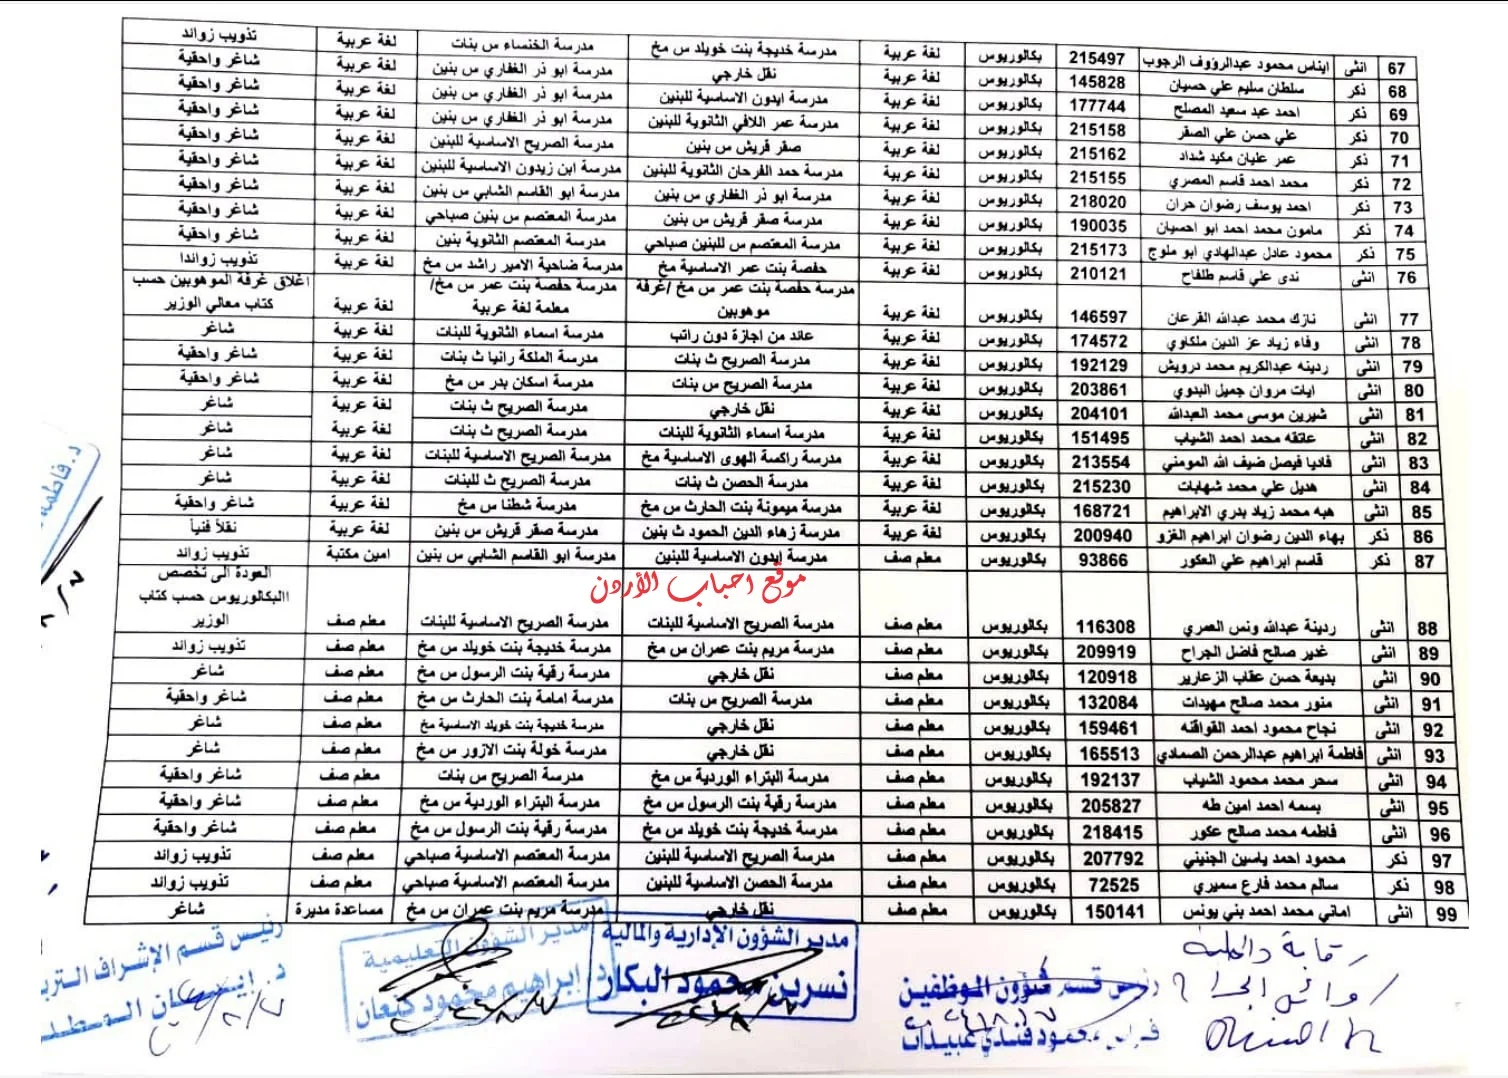 67 انثى ايناس محمود عبدالرؤوف الرجوب 215497 بكالوريوس لغة عربية مدرسة خديجة بنت خويلد س مخ مدرسة الخنساء س بنات لغة عربية تذويب زوائد
68 ذكر سلطان سليم علي حسيان 145828 بكالوريوس لغة عربية نقل خارجي مدرسة ابو ذر الغفاري س بنين لغة عربية شاغر واحقية
69 ذكر احمد عبد سعيد المصلح 177744 بكالوريوس لغة عربية مدرسة ايدون الاساسية للبنين مدرسة ابو ذر الغفاري س بنين لغة عربية شاغر واحقية
70 ذكر علي حسن علي الصقر 215158 بكالوريوس لغة عربية مدرسة عمر اللافي الثانوية للبنين مدرسة ابو ذر الغفاري س بنين لغة عربية شاغر واحقية
71 ذكر عمر عليان مكيد شداد 215162 بكالوريوس لغة عربية صقر قريش س بنين مدرسة الصريح الاساسية للبنين لغة عربية شاغر واحقية
72 ذكر محمد احمد قاسم المصري 215155 بكالوريوس لغة عربية مدرسة حمد الفرحان الثانوية للبنين مدرسة ابن زيدون الاساسية للبنين لغة عربية شاغر واحقية
73 ذكر احمد يوسف رضوان حران 218020 بكالوريوس لغة عربية مدرسة ابو ذر الغفاري س بنين مدرسة ابو القاسم الشابي س بنين لغة عربية شاغر واحقية
74 ذكر مامون محمد احمد ابو احسيان 190035 بكالوريوس لغة عربية مدرسة صقر قريش س بنين مدرسة المعتصم س بنين صباحي لغة عربية شاغر واحقية
75 ذكر محمود عادل عبدالهادي ابو ملوح 215173 بكالوريوس لغة عربية مدرسة المعتصم س للبنين صباحي مدرسة المعتصم الثانوية بنين لغة عربية شاغر واحقية
76 انثى ندى علي قاسم طلفاح 210121 بكالوريوس لغة عربية حفصة بنت عمر الاساسية مخ مدرسة ضاحية الامير راشد س مخ لغة عربية تذويب زواندا
77 انثى نازك محمد عبدالله القرعان 146597 بكالوريوس لغة عربية مدرسة حفصة بنت عمر س مخ /غرفة موهوبين مدرسة حفصة بنت عمر س مخ/ معلمة لغة عربية لغة عربية اغلاق غرفة الموهوبين حسب كتاب معالي الوزير
78 انثى وفاء زياد عز الدين ملكاوي 174572 بكالوريوس لغة عربية عائد من اجازة دون راتب مدرسة اسماء الثانوية للبنات لغة عربية شاغر
79 انثى ردينه عبدالكريم محمد درويش 192129 بكالوريوس لغة عربية مدرسة الصريح ث بنات مدرسة الملكة رانيا ث بنات لغة عربية شاغر واحقية
80 انثى ايات مروان جميل البدوي 203861 بكالوريوس لغة عربية مدرسة الصريح س بنات مدرسة اسكان بدر س مخ لغة عربية شاغر واحقية
81 انثى شيرين موسى محمد العبدالله 204101 بكالوريوس لغة عربية نقل خارجي مدرسة الصريح ث بنات لغة عربية شاغر
82 انثى عاتقه محمد احمد الشياب 151495 بكالوريوس لغة عربية مدرسة اسماء الثانوية للبنات مدرسة الصريح ث بنات لغة عربية شاغر
83 انثى فاديا فيصل ضيف الله المومني 213554 بكالوريوس لغة عربية مدرسة راكسة الهوى الاساسية مخ مدرسة الصريح الاساسية للبنات لغة عربية شاغر
84 انثى هديل علي محمد شهابات 215230 بكالوريوس لغة عربية مدرسة الحصن ث بنات مدرسة الصريح ث للبنات لغة عربية شاغر
85 انثى هبه محمد زياد بدري الابراهيم 168721 بكالوريوس لغة عربية مدرسة ميمونة بنت الحارث س مخ مدرسة شطنا س مخ لغة عربية شاغر واحقية
86 ذكر بهاء الدين رضوان ابراهيم الغزو 200940 بكالوريوس لغة عربية مدرسة زهاء الدين الحمود ث بنين مدرسة صقر قريش س بنين لغة عربية نقلاً فنياً
87 ذكر قاسم ابراهيم علي العكور 93866 بكالوريوس معلم صف مدرسة ايدون الاساسية للبنين مدرسة ابو القاسم الشابي س بنين امين مكتبة تذويب زوائد
موقع احباب الأردن
88 انثى ردينة عبدالله ونس العمري 116308 بكالوريوس معلم صف مدرسة الصريح الاساسية للبنات مدرسة الصريح الاساسية للبنات معلم صف العودة الى تخصص االبكالوريوس حسب كتاب الوزير
89 انثى غدير صالح فاضل الجراح 209919 بكالوريوس معلم صف مدرسة مريم بنت عمران س مخ مدرسة خديجة بنت خويلد س مخ معلم صف تذويب زوائد
90 انثى بديعة حسن عقاب الزعارير 120918 بكالوريوس معلم صف نقل خارجي مدرسة رقية بنت الرسول س مخ معلم صف شاغر
91 انثى منور محمد صالح مهيدات 132084 بكالوريوس معلم صف مدرسة الصريح س بنات مدرسة امامة بنت الحارث س مخ معلم صف شاغر واحقية
92 انثى نجاح محمود احمد القواقنه 159461 بكالوريوس معلم صف نقل خارجي مدرسة خديجة بنت خويلد الاساسية مخ معلم صف شاغر
93 انثى فاطمة ابراهيم عبدالرحمن الصمادي 165513 بكالوريوس معلم صف نقل خارجي مدرسة خولة بنت الازور س مخ معلم صف شاغر
94 انثى سحر محمد محمود الشياب 192137 بكالوريوس معلم صف مدرسة البتراء الوردية س مخ مدرسة الصريح س بنات معلم صف شاغر واحقية
95 انثى بسمه احمد امين طه 205827 بكالوريوس معلم صف مدرسة رقية بنت الرسول س مخ مدرسة البتراء الوردية س مخ معلم صف شاغر واحقية
96 انثى فاطمه محمد صالح عكور 218415 بكالوريوس معلم صف مدرسة خديجة بنت خويلد س مخ مدرسة رقية بنت الرسول س مخ معلم صف شاغر واحقية
97 ذكر محمود احمد ياسين الجنيني 207792 بكالوريوس معلم صف مدرسة الصريح الاساسية للبنين مدرسة المعتصم الاساسية صباحي معلم صف تذويب زوائد
98 ذكر سالم محمد فارع سميري 72525 بكالوريوس معلم صف مدرسة الحصن الاساسية للبنين مدرسة المعتصم الاساسية صباحي معلم صف تذويب زوائد
99 انثى اماني محمد احمد بني يونس 150141 بكالوريوس معلم صف نقل خارجي مدرسة مريم بنت عمران س مخ مساعدة مديرة شاغر
د. فاطمة
رئيس قسم شؤون الموظفين
محمود فندي عبيدات
مدير الشؤون الإدارية والمالية
نسرين محمود البكار
مدير الشؤون التعليمية
د. إبراهيم محمود كنعان
رئيس قسم الإشراف